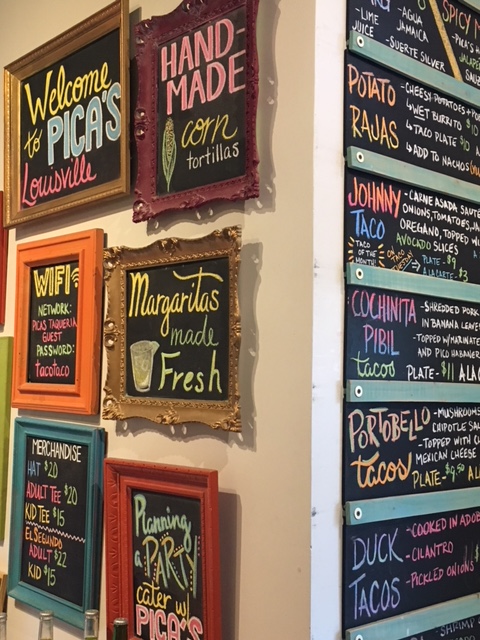 Welcome
to PICA'S
Louisville
HAND-
MADE
corn
tortillas
WIFI
NETWORK:
PICAS TAQUERIA
GUEST
PASSWORD:
tacoTaco
Margaritas
made
Fresh
MERCHANDISE
HAT $20
ADULT TEE $20
KID TEE $15
EL SEGUNDO
ADULT $22
KID $15
Planning
a PARTY
cater w/
PICA'S
-LIME
JUICE
-AGUA
JAMAICA
-SUERTE SILVER
SPICY
-PICA'S
POTATO
RAJAS
-CHEESY POTATOES +
↳WET BURRITO $10
↳TACO PLATE $10
↳ADD TO NACHOS
JOHNNY
TACO
TACO OF
THE MONTH!
-CARNE ASADA SAUTÉ
ONIONS, TOMATOES, JA
OREGANO, TOPPED W/
AVOCADO SLICES
-PLATE-$9
-A LA CARTE-$3
COCHINITA
PIBIL
tacos
-SHREDDED PORK
IN BANANA LEAVE
-TOPPED W/MARINATE
AND PICO HABANER
PLATE-$11 A LA C
PORTOBELLO
tacos
-MUSHROOMS
CHIPOTLE SAU
-TOPPED WITH CU
MEXICAN CHEESE
PLATE-$9.50 A L
DUCK
TACOS
-COOKED IN ADOB
-CILANTRO
-PICKLED ONIONS
-SHRIMP